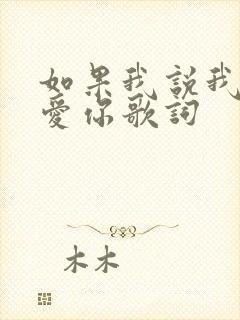 如果我說我
愛你歌詞
木木